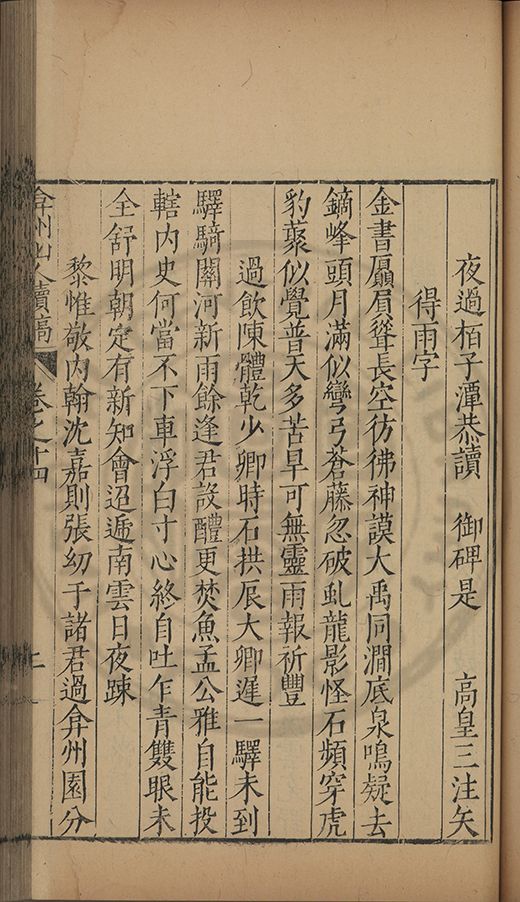 夜過栢子潭恭讀　御碑是　高皇三注矢
得雨字
金書屭屓聳長空彷彿神謨大禹同澗底泉鳴疑去
鏑峰頭月滿似彎弓蒼藤忽破虬龍影怪石頻穿虎
豹藂似覺普天多苦旱可無靈雨報祈豐
過飲陳體乾少卿時石拱辰大卿遲一驛未到
驛騎關河新雨餘逢君設醴更焚魚孟公雅自能投
轄内史何當不下車浮白寸心終自吐乍青雙眼未
全舒明朝定有新知會迢遞南雲日夜踈
黎惟敬内翰沈嘉則張幼于諸君過弇州園分
弇州山人續稿　卷之十四